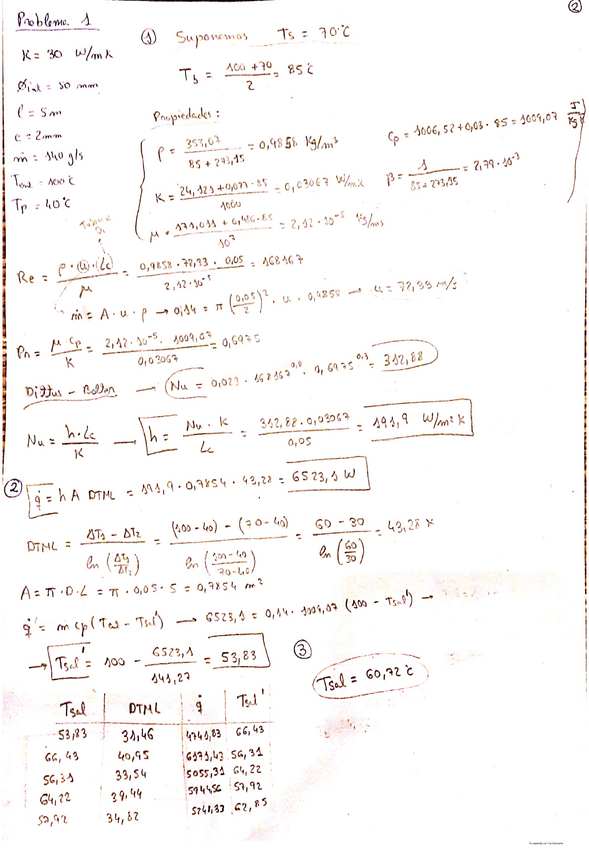 ②
Problema 1
K = 30 W/mK
Øint = 50 mm
l = 5m
e = 2mm
ṁ = 140 g/s
Tent = 100°C
Tp = 40°C
① Suponemos Ts = 70°C
Tb = (100 + 70)/2 = 85°C
Propiedades:
ρ = 353,07/(85 + 273,15) = 0,9858 Kg/m³
K = (24,121 + 0,077 · 85)/1000 = 0,03067 W/mK
μ = (171,011 + 0,486 · 85)/10⁷ = 2,12 · 10⁻⁵ Kg/ms
Cp = 1006,52 + 0,03 · 85 = 1009,07 J/Kg K
β = 1/(85 + 273,15) = 2,79 · 10⁻³
Re = ρ · u · Lc/μ = 0,9858 · 72,33 · 0,05/2,12 · 10⁻⁵ = 168167
ṁ = A · u · ρ → 0,14 = π (0,05/2)² · u · 0,9858 → u = 72,33 m/s
Pn = μ · cp/K = 2,12 · 10⁻⁵ · 1009,07/0,03067 = 0,6975
Dittus - Bolter → Nu = 0,023 · 168167^0,8 · 0,6975^0,3 = 312,88
Nu = h · Lc/K → h = Nu · K/Lc = 312,88 · 0,03067/0,05 = 191,9 W/m² K
② q̇ = h A DTML = 191,9 · 0,7854 · 43,28 = 6523,1 W
DTML = (ΔT1 - ΔT2)/ln(ΔT1/ΔT2) = ((100 - 40) - (70 - 40))/ln((100 - 40)/(70 - 40)) = (60 - 30)/ln(60/30) = 43,28 K
A = π · D · L = π · 0,05 · 5 = 0,7854 m²
q̇ = m cp (Tent - Tsal') → 6523,1 = 0,14 · 1009,07 (100 - Tsal') →
→ Tsal' = 100 - 6523,1/141,27 = 53,83
③
Tsal = 60,72°C
Tsal DTML q̇ Tsal'
53,83 31,46 4741,83 66,43
66,43 40,95 6171,43 56,31
56,31 33,54 5055,31 64,22
64,22 39,44 594456 57,92
57,92 34,82 5248,33 62,85